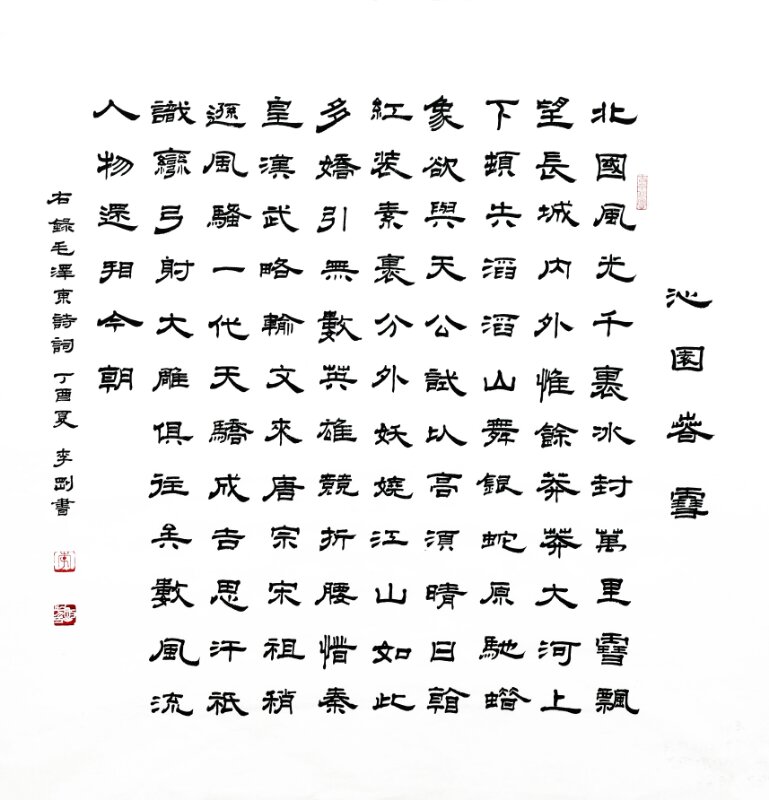 沁園春雪
北國風光千裏冰封萬里雪飄
望長城內外惟餘莽莽大河上
下頓失滔滔山舞銀蛇原馳蜡
象欲與天公試比高須晴日看
紅装素裹分外妖嬈江山如此
多嬌引無數英雄競折腰惜秦
皇漢武略輸文來唐宗宋祖稍
遜風騷一代天驕成吉思汗祇
識彎弓射大雕俱往矣數風流
人物還看今朝
右錄毛澤東詩詞 丁酉夏 李剛書